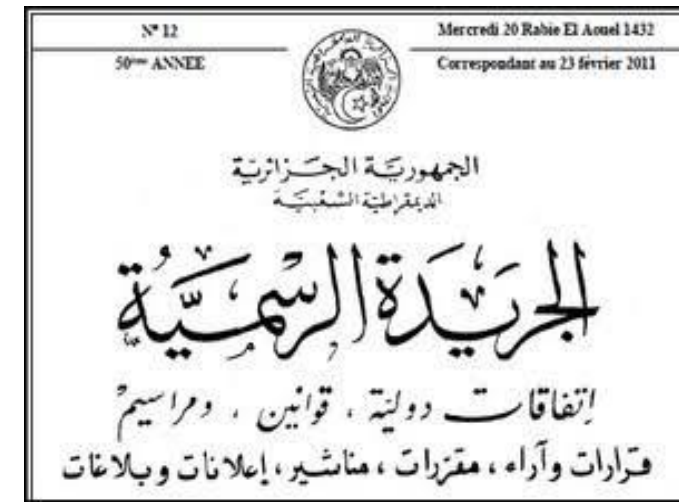 N° 12
Mercredi 20 Rabie El Aouel 1432
50ème ANNEE
Correspondant au 23 février 2011
الجمهوريّة الجـزائريّة
الديمقراطيّة الشعبيّة
الجريدة الرسميّة
إتفاقات دوليّة ، قوانين ، ومراسيم
قرارات وآراء ، مقرّرات ، مناشير ، إعلانات وبلاغات